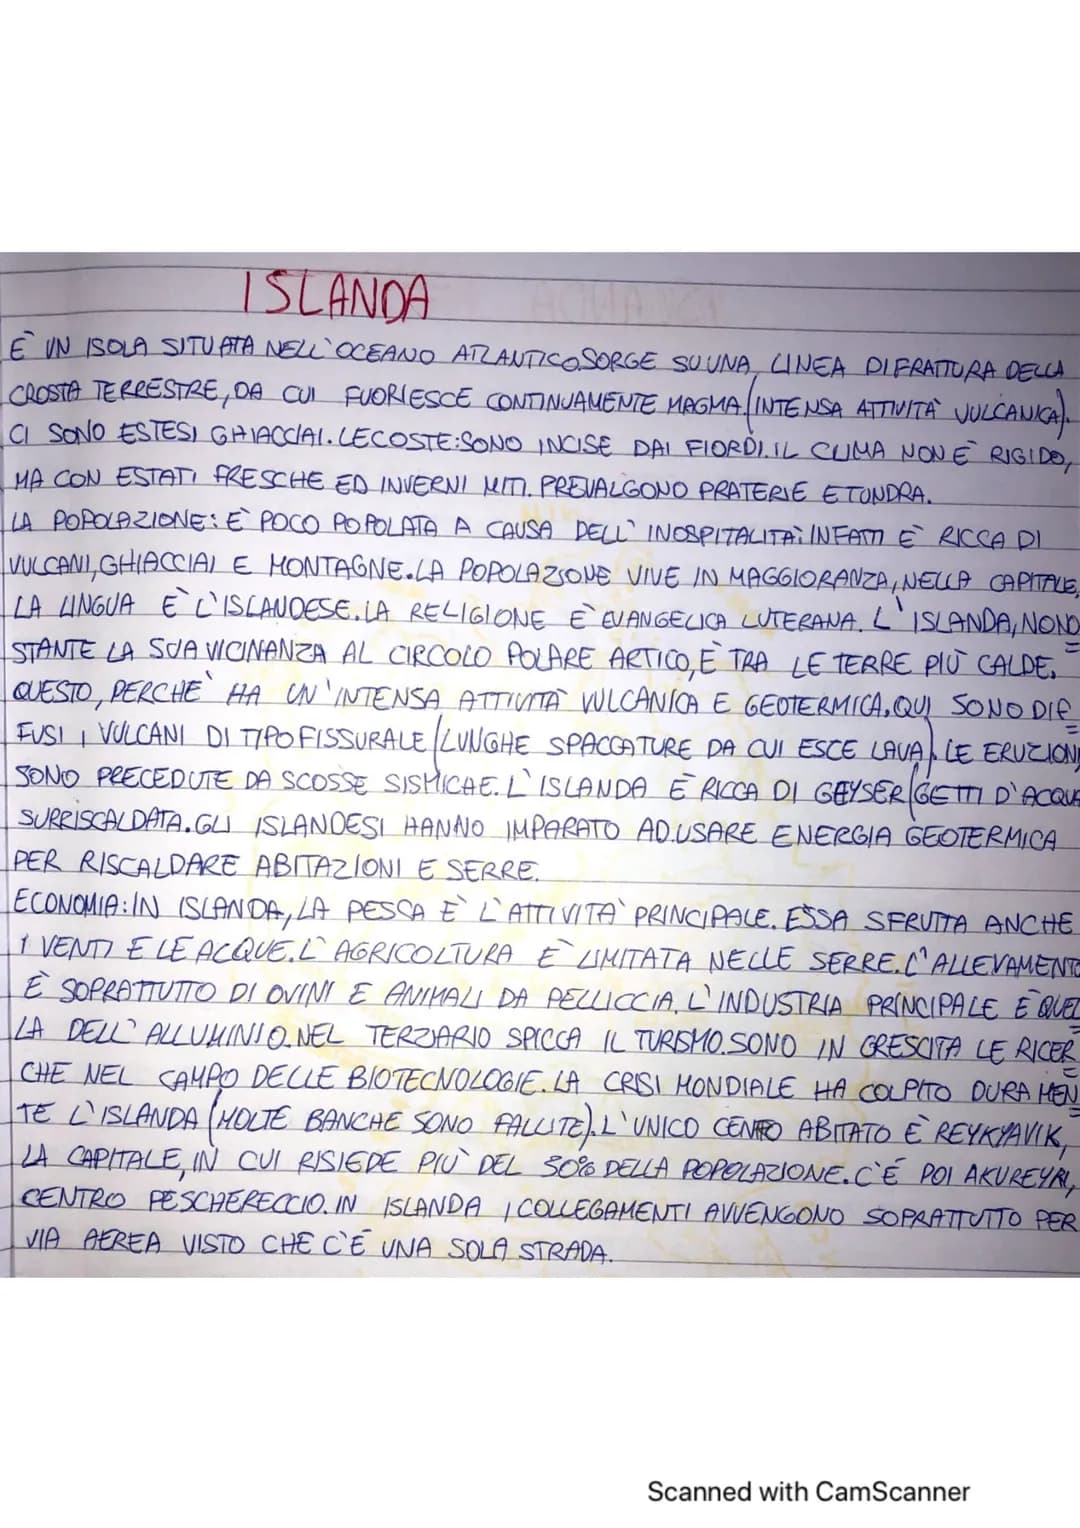 ISLANDA
È UN ISOLA SITUATA NELL'OCEANO ATLANTICO.SORGE SU UNA LINEA DI FRATTURA DELLA
CROSTA TERRESTRE, DA CUI FUORIESCE CONTINUAMENTE MAGMA (INTENSA ATTIVITÀ VULCANICA).
CI SONO ESTESI GHIACCIAI. LE COSTE: SONO INCISE DAI FIORDI. IL CLIMA NON È RIGIDO,
MA CON ESTATI FRESCHE ED INVERNI MITI. PREVALGONO PRATERIE E TUNDRA.
LA POPOLAZIONE: È POCO POPOLATA A CAUSA DELL'INOSPITALITÀ: INFATTI È RICCA DI
VULCANI, GHIACCIAI E MONTAGNE. LA POPOLAZIONE VIVE IN MAGGIORANZA, NELLA CAPITALE,
LA LINGUA È L'ISLANDESE. LA RELIGIONE È EVANGELICA LUTERANA. L'ISLANDA, NONO=
STANTE LA SUA VICINANZA AL CIRCOLO POLARE ARTICO, È TRA LE TERRE PIÙ CALDE.
QUESTO, PERCHÈ HA UN'INTENSA ATTIVITÀ VULCANICA E GEOTERMICA. QUI SONO DIF=
FUSI I VULCANI DI TIPO FISSURALE (LUNGHE SPACCATURE DA CUI ESCE LAVA). LE ERUZIONI
SONO PRECEDUTE DA SCOSSE SISMICHE. L'ISLANDA È RICCA DI GEYSER (GETTI D'ACQUA
SURRISCALDATA. GLI ISLANDESI HANNO IMPARATO AD USARE ENERGIA GEOTERMICA
PER RISCALDARE ABITAZIONI E SERRE.
ECONOMIA: IN ISLANDA, LA PESCA È L'ATTIVITÀ PRINCIPALE. ESSA SFRUTTA ANCHE
I VENTI E LE ACQUE. L'AGRICOLTURA È LIMITATA NELLE SERRE. L'ALLEVAMENTO
È SOPRATTUTTO DI OVINI E ANIMALI DA PELLICCIA. L'INDUSTRIA PRINCIPALE È QUEL
LA DELL'ALLUMINIO. NEL TERZIARIO SPICCA IL TURISMO. SONO IN CRESCITA LE RICER=
CHE NEL CAMPO DELLE BIOTECNOLOGIE. LA CRISI MONDIALE HA COLPITO DURAMEN=
TE L'ISLANDA (MOLTE BANCHE SONO FALLITE). L'UNICO CENTRO ABITATO È REYKYAVIK,
LA CAPITALE, IN CUI RISIEDE PIÙ DEL 30% DELLA POPOLAZIONE. C'È POI AKUREYRI,
CENTRO PESCHERECCIO. IN ISLANDA I COLLEGAMENTI AVVENGONO SOPRATTUTTO PER
VIA AEREA VISTO CHE C'È UNA SOLA STRADA.
Scanned with CamScanner